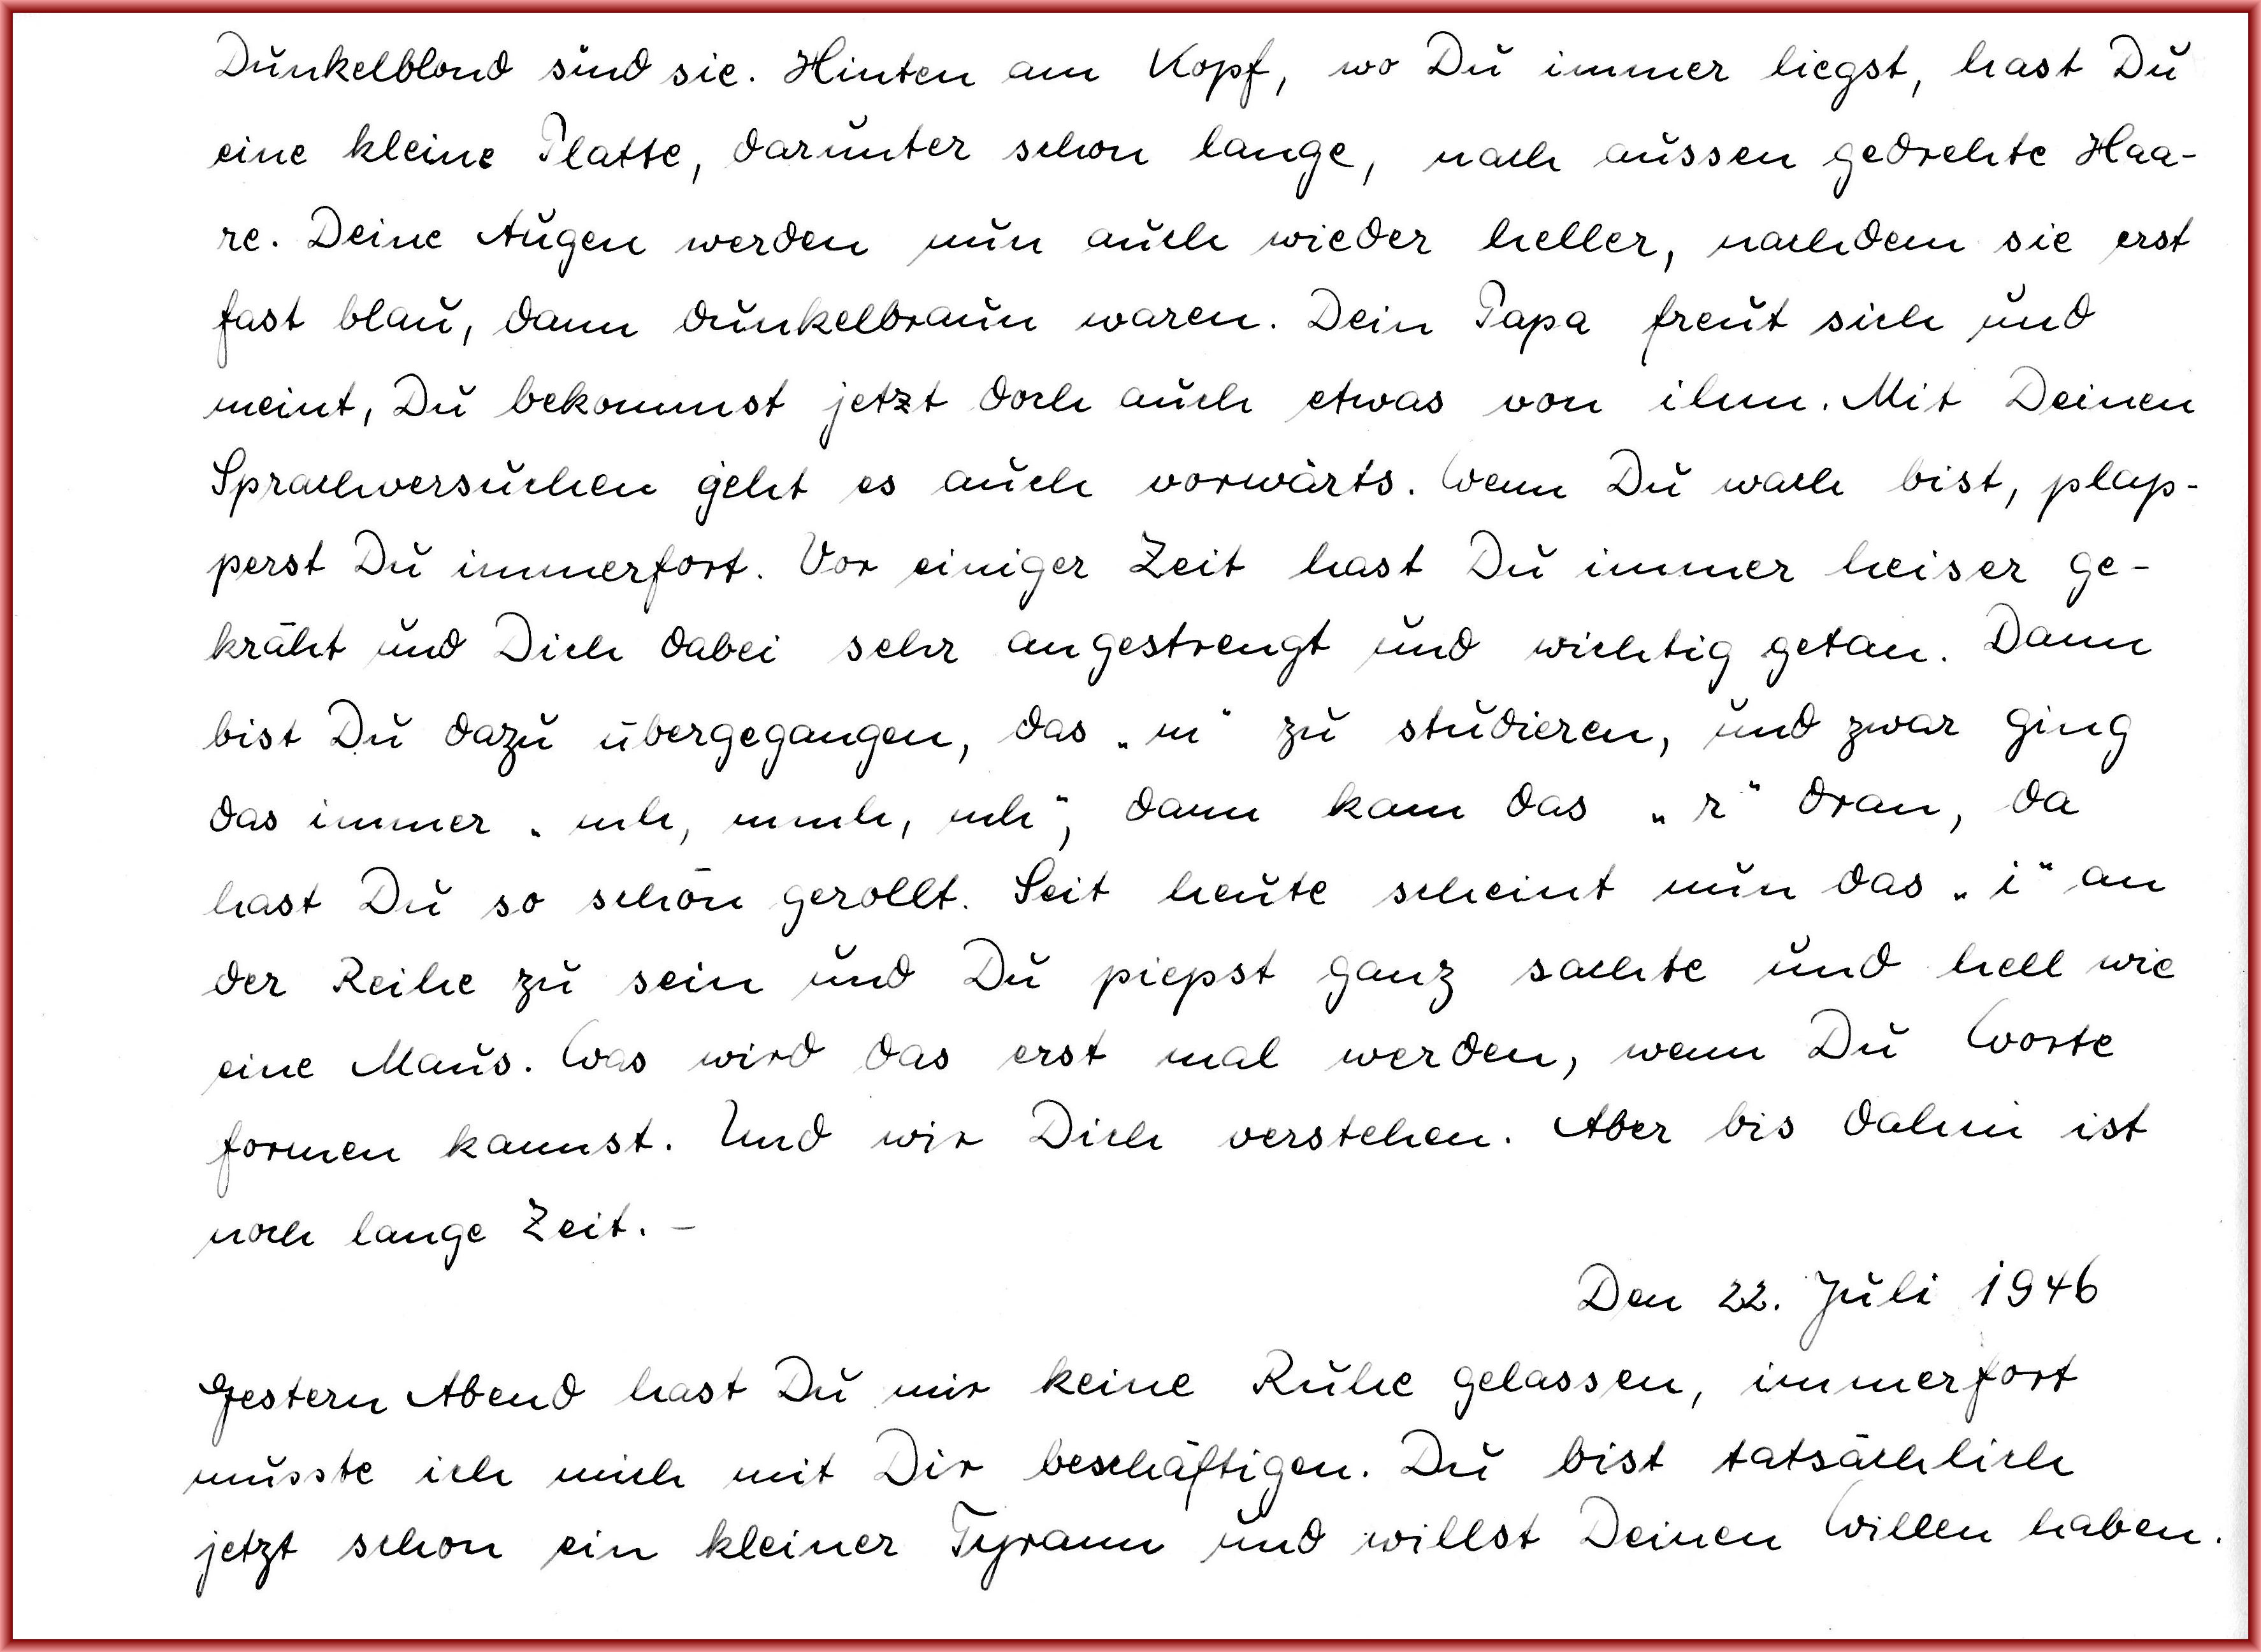 Dunkelblond sind sie. Hinten am Kopf, wo Du immer liegst, hast Du
eine kleine Platte, darunter schon lange, nach aussen gedrehte Haa-
re. Deine Augen werden nun auch wieder heller, nachdem sie erst
fast blau, dann dunkelbraun waren. Dein Papa freut sich und
meint, Du bekommst jetzt doch auch etwas von ihm. Mit Deinen
Sprachversuchen geht es auch vorwärts. Wenn Du wach bist, plap-
perst Du immerfort. Vor einiger Zeit hast Du immer heiser ge-
kräht und Dich dabei sehr angestrengt und wichtig getan. Dann
bist Du dazu übergegangen, das „m“ zu studieren, und zwar ging
das immer „mh, mmh, mh“, dann kam das „r“ dran, da
hast Du so schön gerollt. Seit heute scheint nun das „i“ an
der Reihe zu sein und Du piepst ganz sachte und hell wie
eine Maus. Was wird das erst mal werden, wenn Du Worte
formen kannst. Und wir Dich verstehen. Aber bis dahin ist
noch lange Zeit. –
Den 22. Juli 1946
Gestern Abend hast Du mir keine Ruhe gelassen, immerfort
musste ich mich mit Dir beschäftigen. Du bist tatsächlich
jetzt schon ein kleiner Tyrann und willst Deinen Willen haben.